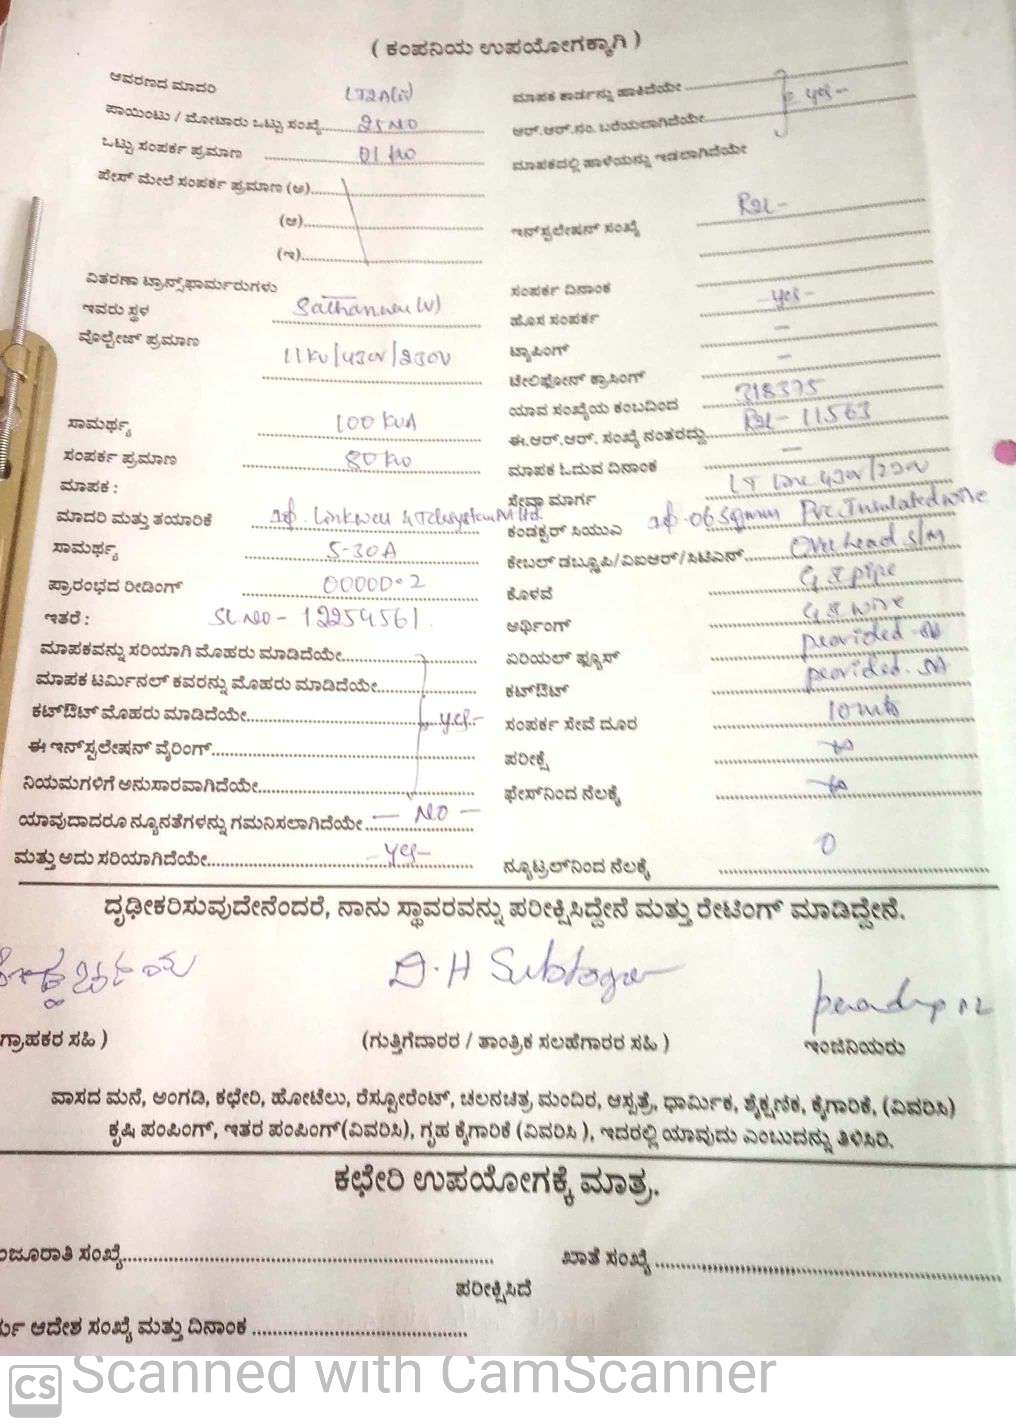 ( ಕಂಪನಿಯ ಉಪಯೋಗಕ್ಕಾಗಿ )
ಆವರಣದ ಮಾದರಿ LT2A(ii)
ಪಾಯಿಂಟು / ಮೋಟಾರು ಒಟ್ಟು ಸಂಖ್ಯೆ 25 NO
ಒಟ್ಟು ಸಂಪರ್ಕ ಪ್ರಮಾಣ 01 KW
ಪೇಸ್ ಮೇಲೆ ಸಂಪರ್ಕ ಪ್ರಮಾಣ (ಅ)
(ಆ)
(ಇ)
ವಿತರಣಾ ಟ್ರಾನ್ಸ್‌ಫಾರ್ಮರುಗಳು
ಇವರು ಸ್ಥಳ (V)
ವೊಲ್ಟೇಜ್ ಪ್ರಮಾಣ 11KV/430V/230V
ಸಾಮರ್ಥ್ಯ 100 KVA
ಸಂಪರ್ಕ ಪ್ರಮಾಣ 80 KW
ಮಾಪಕ :
ಮಾದರಿ ಮತ್ತು ತಯಾರಿಕೆ 1ф. Linkwell Telesystem P Ltd
ಸಾಮರ್ಥ್ಯ 5-30A
ಪ್ರಾರಂಭದ ರೀಡಿಂಗ್ 00000.2
ಇತರೆ : SL NO - 12254561
ಮಾಪಕವನ್ನು ಸರಿಯಾಗಿ ಮೊಹರು ಮಾಡಿದೆಯೇ
ಮಾಪಕ ಟರ್ಮಿನಲ್ ಕವರನ್ನು ಮೊಹರು ಮಾಡಿದೆಯೇ
ಕಟ್‌ಔಟ್ ಮೊಹರು ಮಾಡಿದೆಯೇ yes-
ಈ ಇನ್‌ಸ್ಟಲೇಷನ್ ವೈರಿಂಗ್
ನಿಯಮಗಳಿಗೆ ಅನುಸಾರವಾಗಿದೆಯೇ
ಯಾವುದಾದರೂ ನ್ಯೂನತೆಗಳನ್ನು ಗಮನಿಸಲಾಗಿದೆಯೇ - NO -
ಮತ್ತು ಅದು ಸರಿಯಾಗಿದೆಯೇ - yes-
ಮಾಪಕ ಕಾರ್ಡನ್ನು ಹಾಕಿದೆಯೇ
ಆರ್.ಆರ್.ನಂ. ಬರೆಯಲಾಗಿದೆಯೇ yes-
ಮಾಪಕದಲ್ಲಿ ಹಾಳೆಯನ್ನು ಇಡಲಾಗಿದೆಯೇ
ಇನ್‌ಸ್ಟಲೇಷನ್ ಸಂಖ್ಯೆ R2L-
ಸಂಪರ್ಕ ದಿನಾಂಕ
ಹೊಸ ಸಂಪರ್ಕ - yes -
ಟ್ಯಾಪಿಂಗ್ -
ಟೇಲಿಫೋನ್ ಕ್ರಾಸಿಂಗ್ -
ಯಾವ ಸಂಖ್ಯೆಯ ಕಂಬದಿಂದ 318375
ಈ.ಆರ್.ಆರ್. ಸಂಖ್ಯೆ ನಂತರದ್ದು R2L-11563
ಮಾಪಕ ಓದುವ ದಿನಾಂಕ -
ಸೇವಾ ಮಾರ್ಗ LT Line 430V/230V
ಕಂಡಕ್ಟರ್ ಸಿಯುಎ 1ф.06 Sqmm Pvc Insulated wire
ಕೇಬಲ್ ಡಬ್ಲೂಪಿ/ವಿಐಆರ್/ಸಿಟಿಎಸ್ Over head S/M
ಕೊಳವೆ G I pipe
ಅರ್ಥಿಂಗ್ G I wire
ಏರಿಯಲ್ ಫ್ಯೂಸ್ provided
ಕಟ್‌ಔಟ್ provided.
ಸಂಪರ್ಕ ಸೇವೆ ದೂರ 10 mts
ಪರೀಕ್ಷೆ
ಫೇಸ್‌ನಿಂದ ನೆಲಕ್ಕೆ
ನ್ಯೂಟ್ರಲ್‌ನಿಂದ ನೆಲಕ್ಕೆ 0
ದೃಢೀಕರಿಸುವುದೇನೆಂದರೆ, ನಾನು ಸ್ಥಾವರವನ್ನು ಪರೀಕ್ಷಿಸಿದ್ದೇನೆ ಮತ್ತು ರೇಟಿಂಗ್ ಮಾಡಿದ್ದೇನೆ.
D.H
ಗ್ರಾಹಕರ ಸಹಿ ) (ಗುತ್ತಿಗೆದಾರರ / ತಾಂತ್ರಿಕ ಸಲಹೆಗಾರರ ಸಹಿ ) ಇಂಜಿನಿಯರು
ವಾಸದ ಮನೆ, ಅಂಗಡಿ, ಕಛೇರಿ, ಹೋಟೆಲು, ರೆಸ್ಟೋರೆಂಟ್, ಚಲನಚಿತ್ರ ಮಂದಿರ, ಆಸ್ಪತ್ರೆ, ಧಾರ್ಮಿಕ, ಶೈಕ್ಷಣಿಕ, ಕೈಗಾರಿಕೆ, (ವಿವರಿಸಿ)
ಕೃಷಿ ಪಂಪಿಂಗ್, ಇತರ ಪಂಪಿಂಗ್(ವಿವರಿಸಿ), ಗೃಹ ಕೈಗಾರಿಕೆ (ವಿವರಿಸಿ ), ಇದರಲ್ಲಿ ಯಾವುದು ಎಂಬುದನ್ನು ತಿಳಿಸಿರಿ.
ಕಛೇರಿ ಉಪಯೋಗಕ್ಕೆ ಮಾತ್ರ.
ಂಜೂರಾತಿ ಸಂಖ್ಯೆ ಖಾತೆ ಸಂಖ್ಯೆ
ಪರೀಕ್ಷಿಸಿದೆ
ಆದೇಶ ಸಂಖ್ಯೆ ಮತ್ತು ದಿನಾಂಕ
CS Scanned with CamScanner